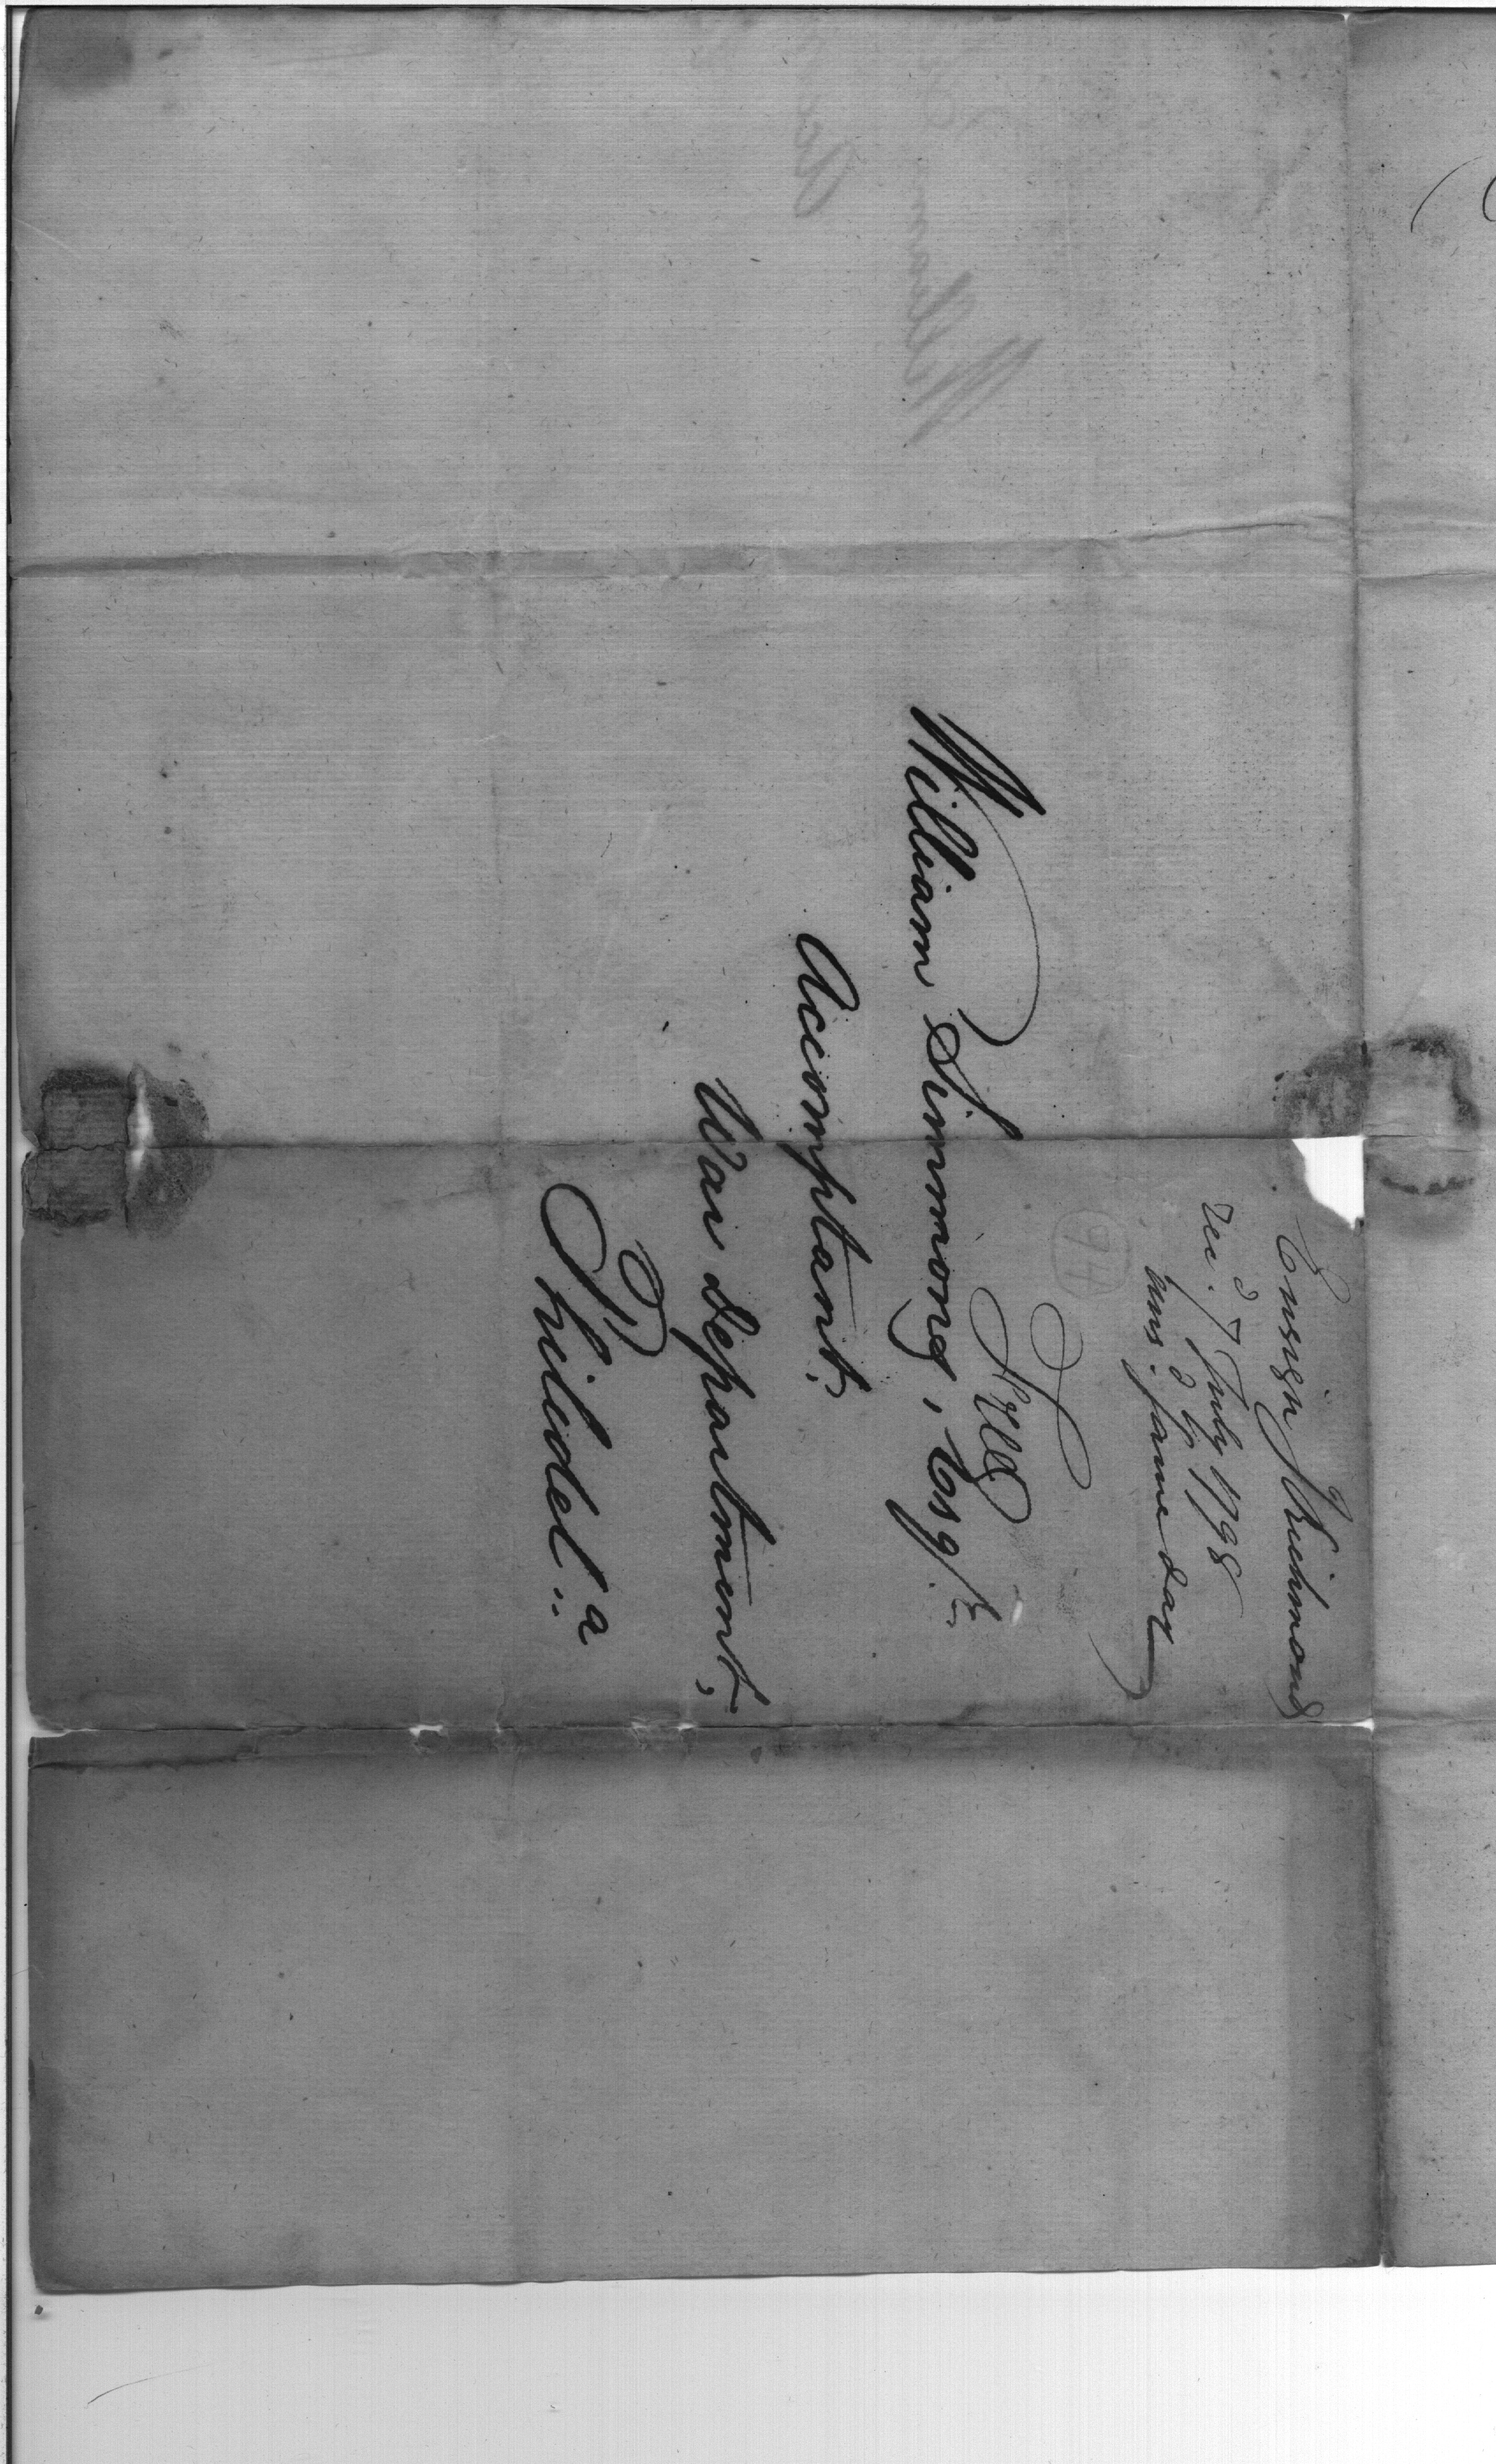 Ensign Richmond
Rec.d 7 July 1798
Ans.d same day
Free
William Simmons, Esqr.
Accomptant.
War Department,
Philadel.a